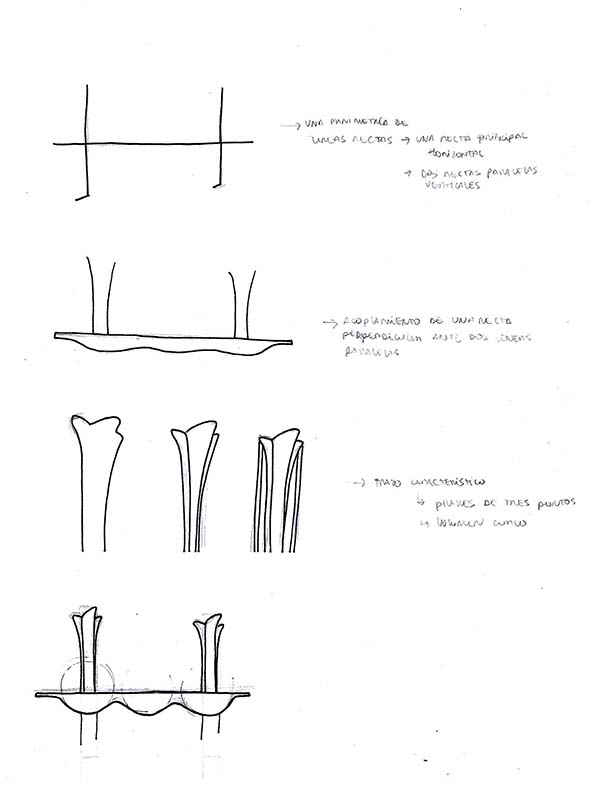 → UNA PARIMETRÍA DE
LINEAS RECTAS → UNA RECTA PRINCIPAL
HORIZONTAL
→ DOS RECTAS PARALELAS
VERTICALES
→ ACOPLAMIENTO DE UNA RECTA
PERPENDICULAR ANTE DOS LÍNEAS
PARALELAS
→ TRAZO CARACTERÍSTICO
↳ PILARES DE TRES PUNTOS
↳ VOLUMEN CURVO